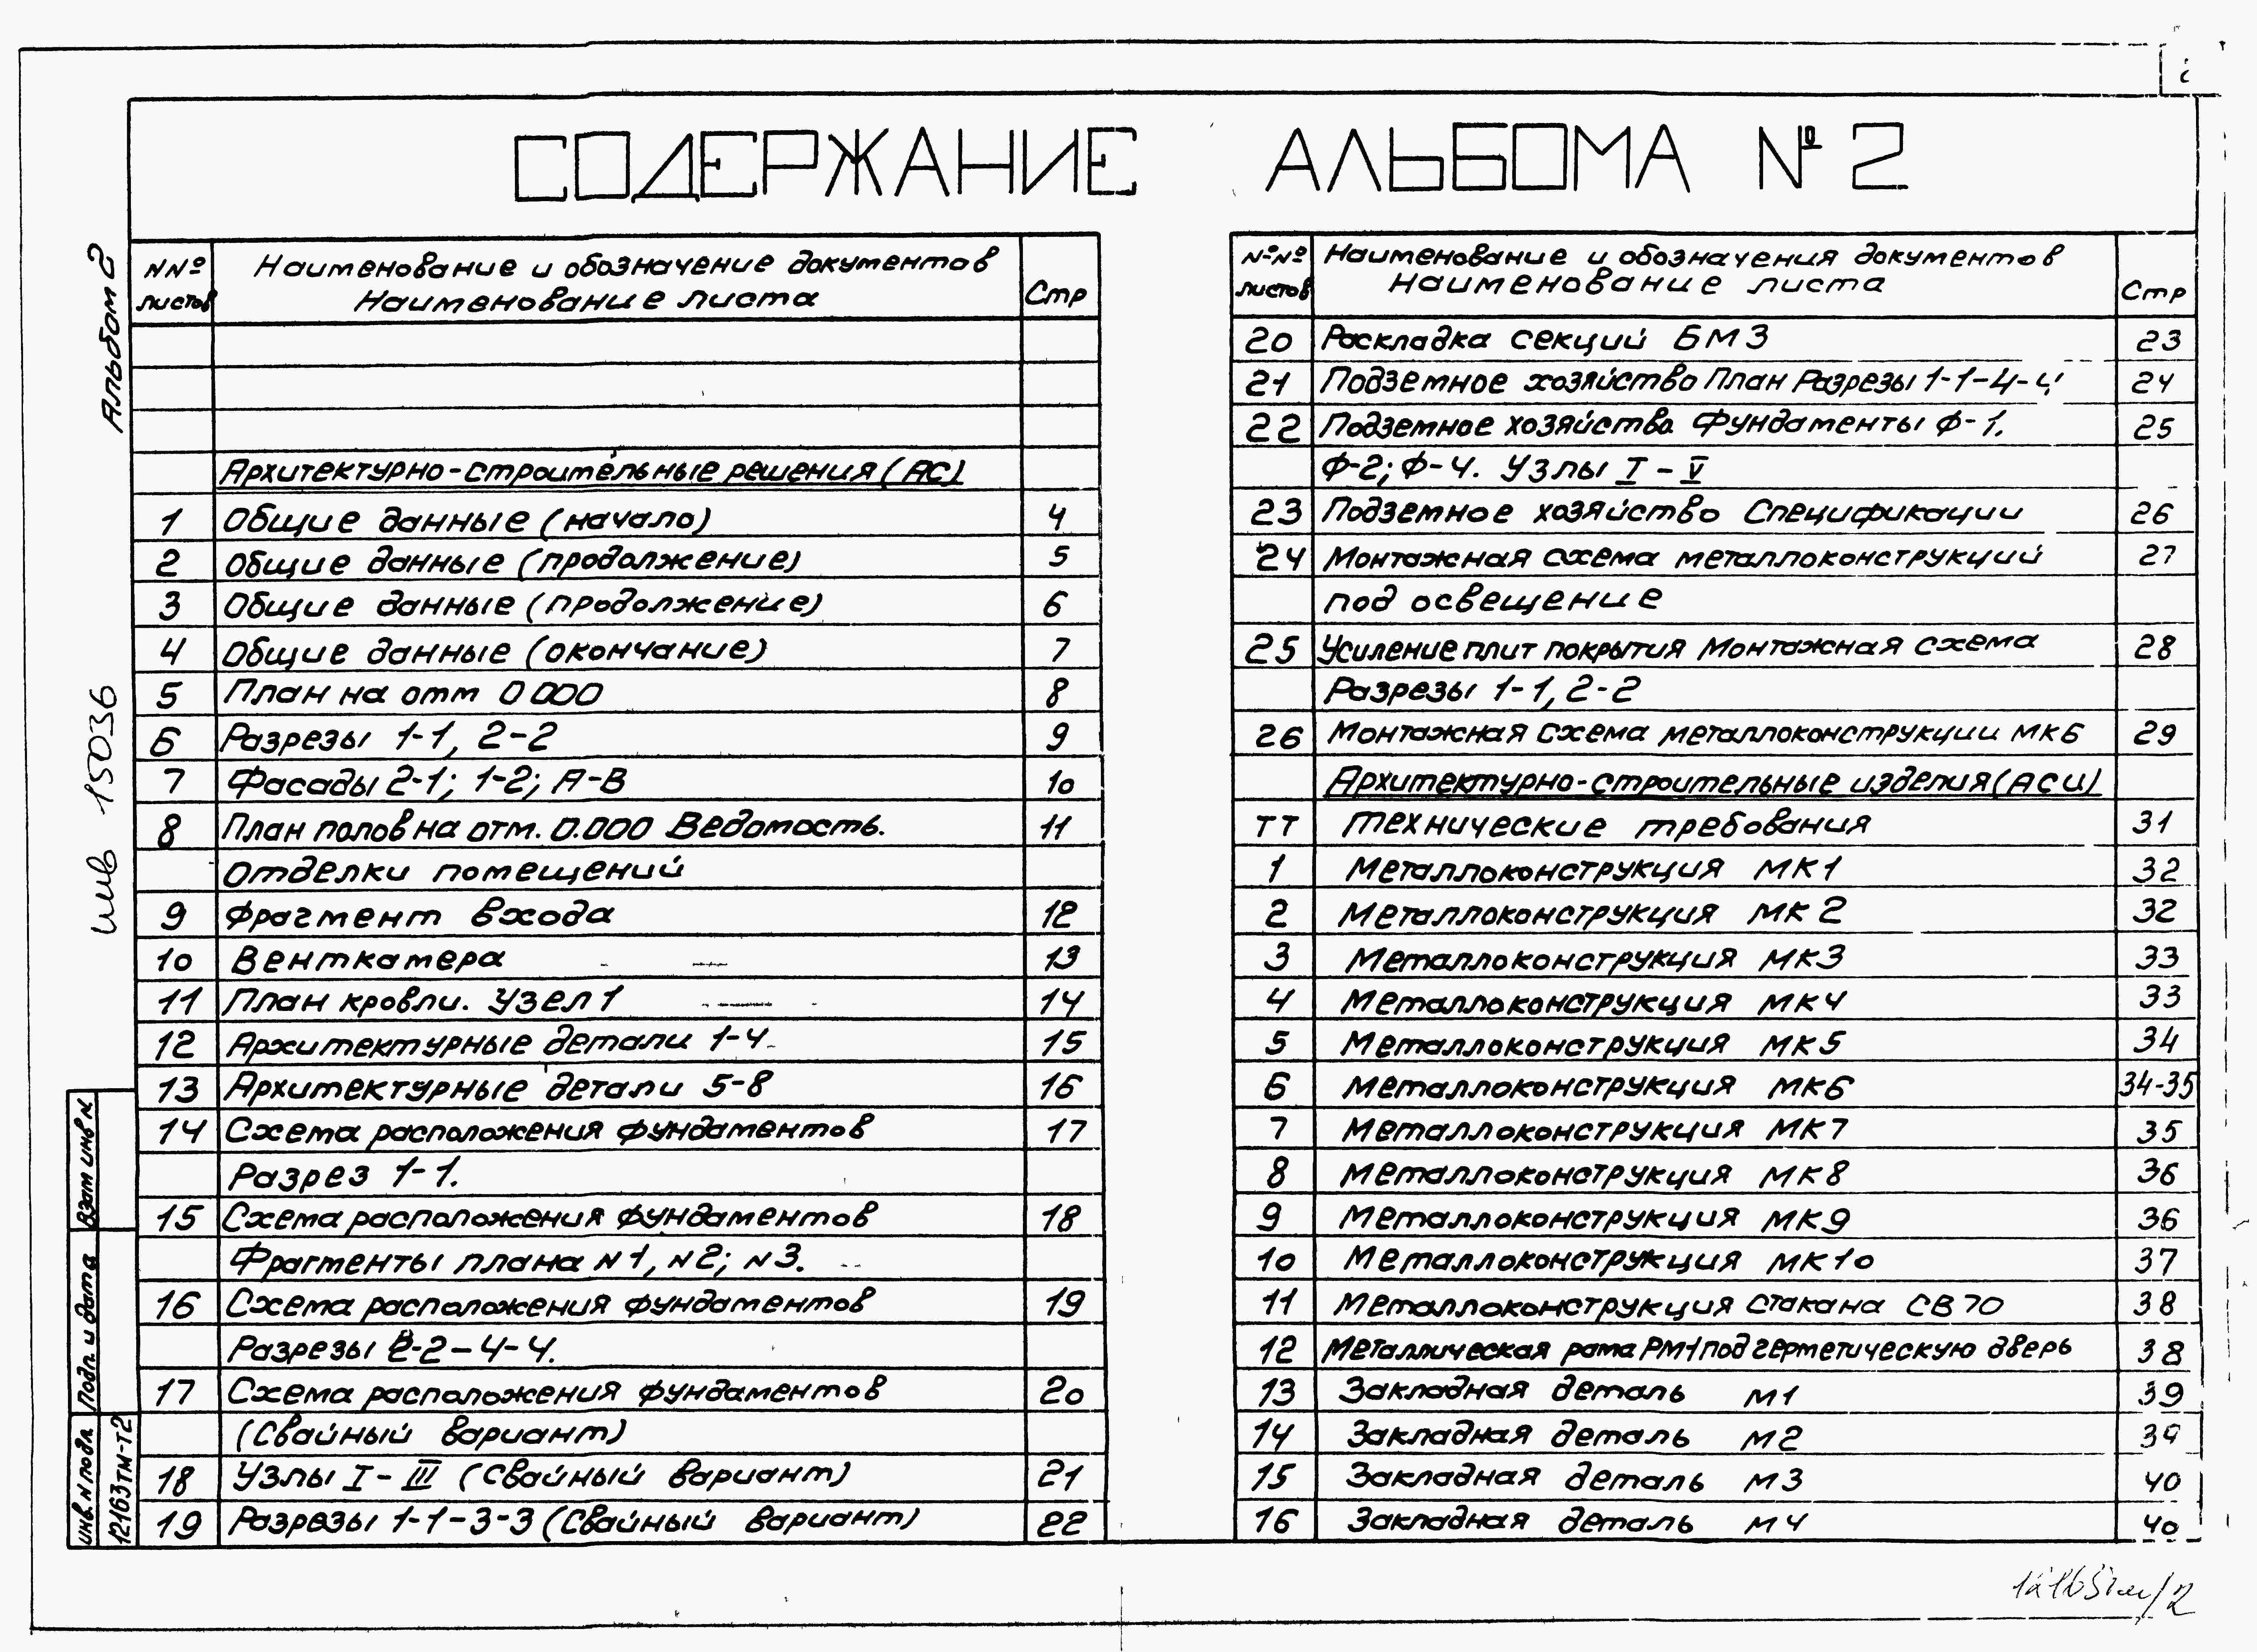 СОДЕРЖАНИЕ АЛЬБОМА №2
Альбом 2
инв 15036
Взам инв N
Подп. и дата
Инв. N подл.
12163ТМ-Т2
NNº листов Наименование и обозначение документов Наименование листа Стр
Архитектурно-строительные решения (АС)
1 Общие данные (начало) 4
2 Общие данные (продолжение) 5
3 Общие данные (продолжение) 6
4 Общие данные (окончание) 7
5 План на отм 0 000 8
6 Разрезы 1-1, 2-2 9
7 Фасады 2-1; 1-2; А-В 10
8 План полов на отм. 0.000 Ведомость. 11
отделки помещений
9 Фрагмент входа 12
10 Венткамера 13
11 План кровли. Узел 1 14
12 Архитектурные детали 1-4 15
13 Архитектурные детали 5-8 16
14 Схема расположения фундаментов 17
Разрез 1-1.
15 Схема расположения фундаментов 18
Фрагменты плана N1, N2; N3.
16 Схема расположения фундаментов 19
Разрезы 2-2-4-4.
17 Схема расположения фундаментов 20
(Свайный вариант)
18 Узлы I-III (Свайный вариант) 21
19 Разрезы 1-1-3-3 (Свайный вариант) 22
№№ листов Наименование и обозначения документов Наименование листа Стр
20 Раскладка секций БМЗ 23
21 Подземное хозяйство План Разрезы 1-1-4-4 24
22 Подземное хозяйство Фундаменты Ф-1. 25
Ф-2; Ф-4. Узлы I-V
23 Подземное хозяйство Спецификации 26
24 Монтажная схема металлоконструкций 27
под освещение
25 Усиление плит покрытия Монтажная схема 28
Разрезы 1-1, 2-2
26 Монтажная схема металлоконструкции МК6 29
Архитектурно-строительные изделия (АСИ)
ТТ Технические требования 31
1 Металлоконструкция МК1 32
2 Металлоконструкция МК2 32
3 Металлоконструкция МК3 33
4 Металлоконструкция МК4 33
5 Металлоконструкция МК5 34
6 Металлоконструкция МК6 34-35
7 Металлоконструкция МК7 35
8 Металлоконструкция МК8 36
9 Металлоконструкция МК9 36
10 Металлоконструкция МК10 37
11 Металлоконструкция стакана СВ70 38
12 Металлическая рама РМ-1 под герметическую дверь 38
13 Закладная деталь М1 39
14 Закладная деталь М2 39
15 Закладная деталь М3 40
16 Закладная деталь М4 40